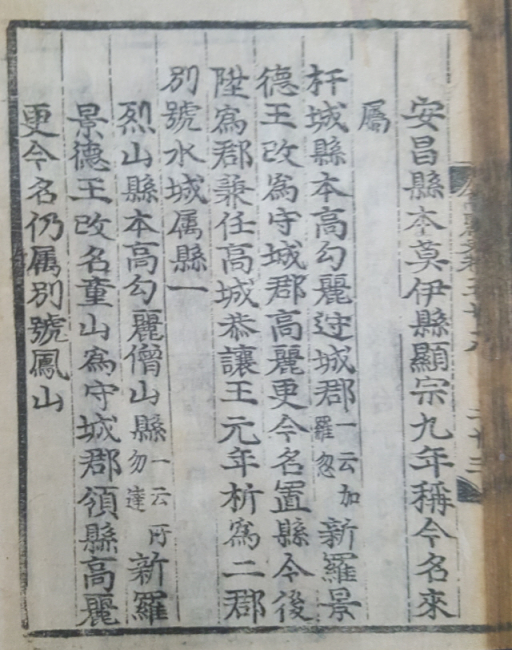 安昌縣本莫伊縣顯宗九年稱今名來
屬
杆城縣本高勾麗䢘城郡一云加羅忽新羅景
德王改爲守城郡高麗更今名置縣令後
陞爲郡兼任高城恭讓王元年析爲二郡
別號水城属縣一
烈山縣本高勾麗僧山縣一云所勿達新羅
景德王改名童山爲守城郡領縣高麗
更今名仍属別號鳳山